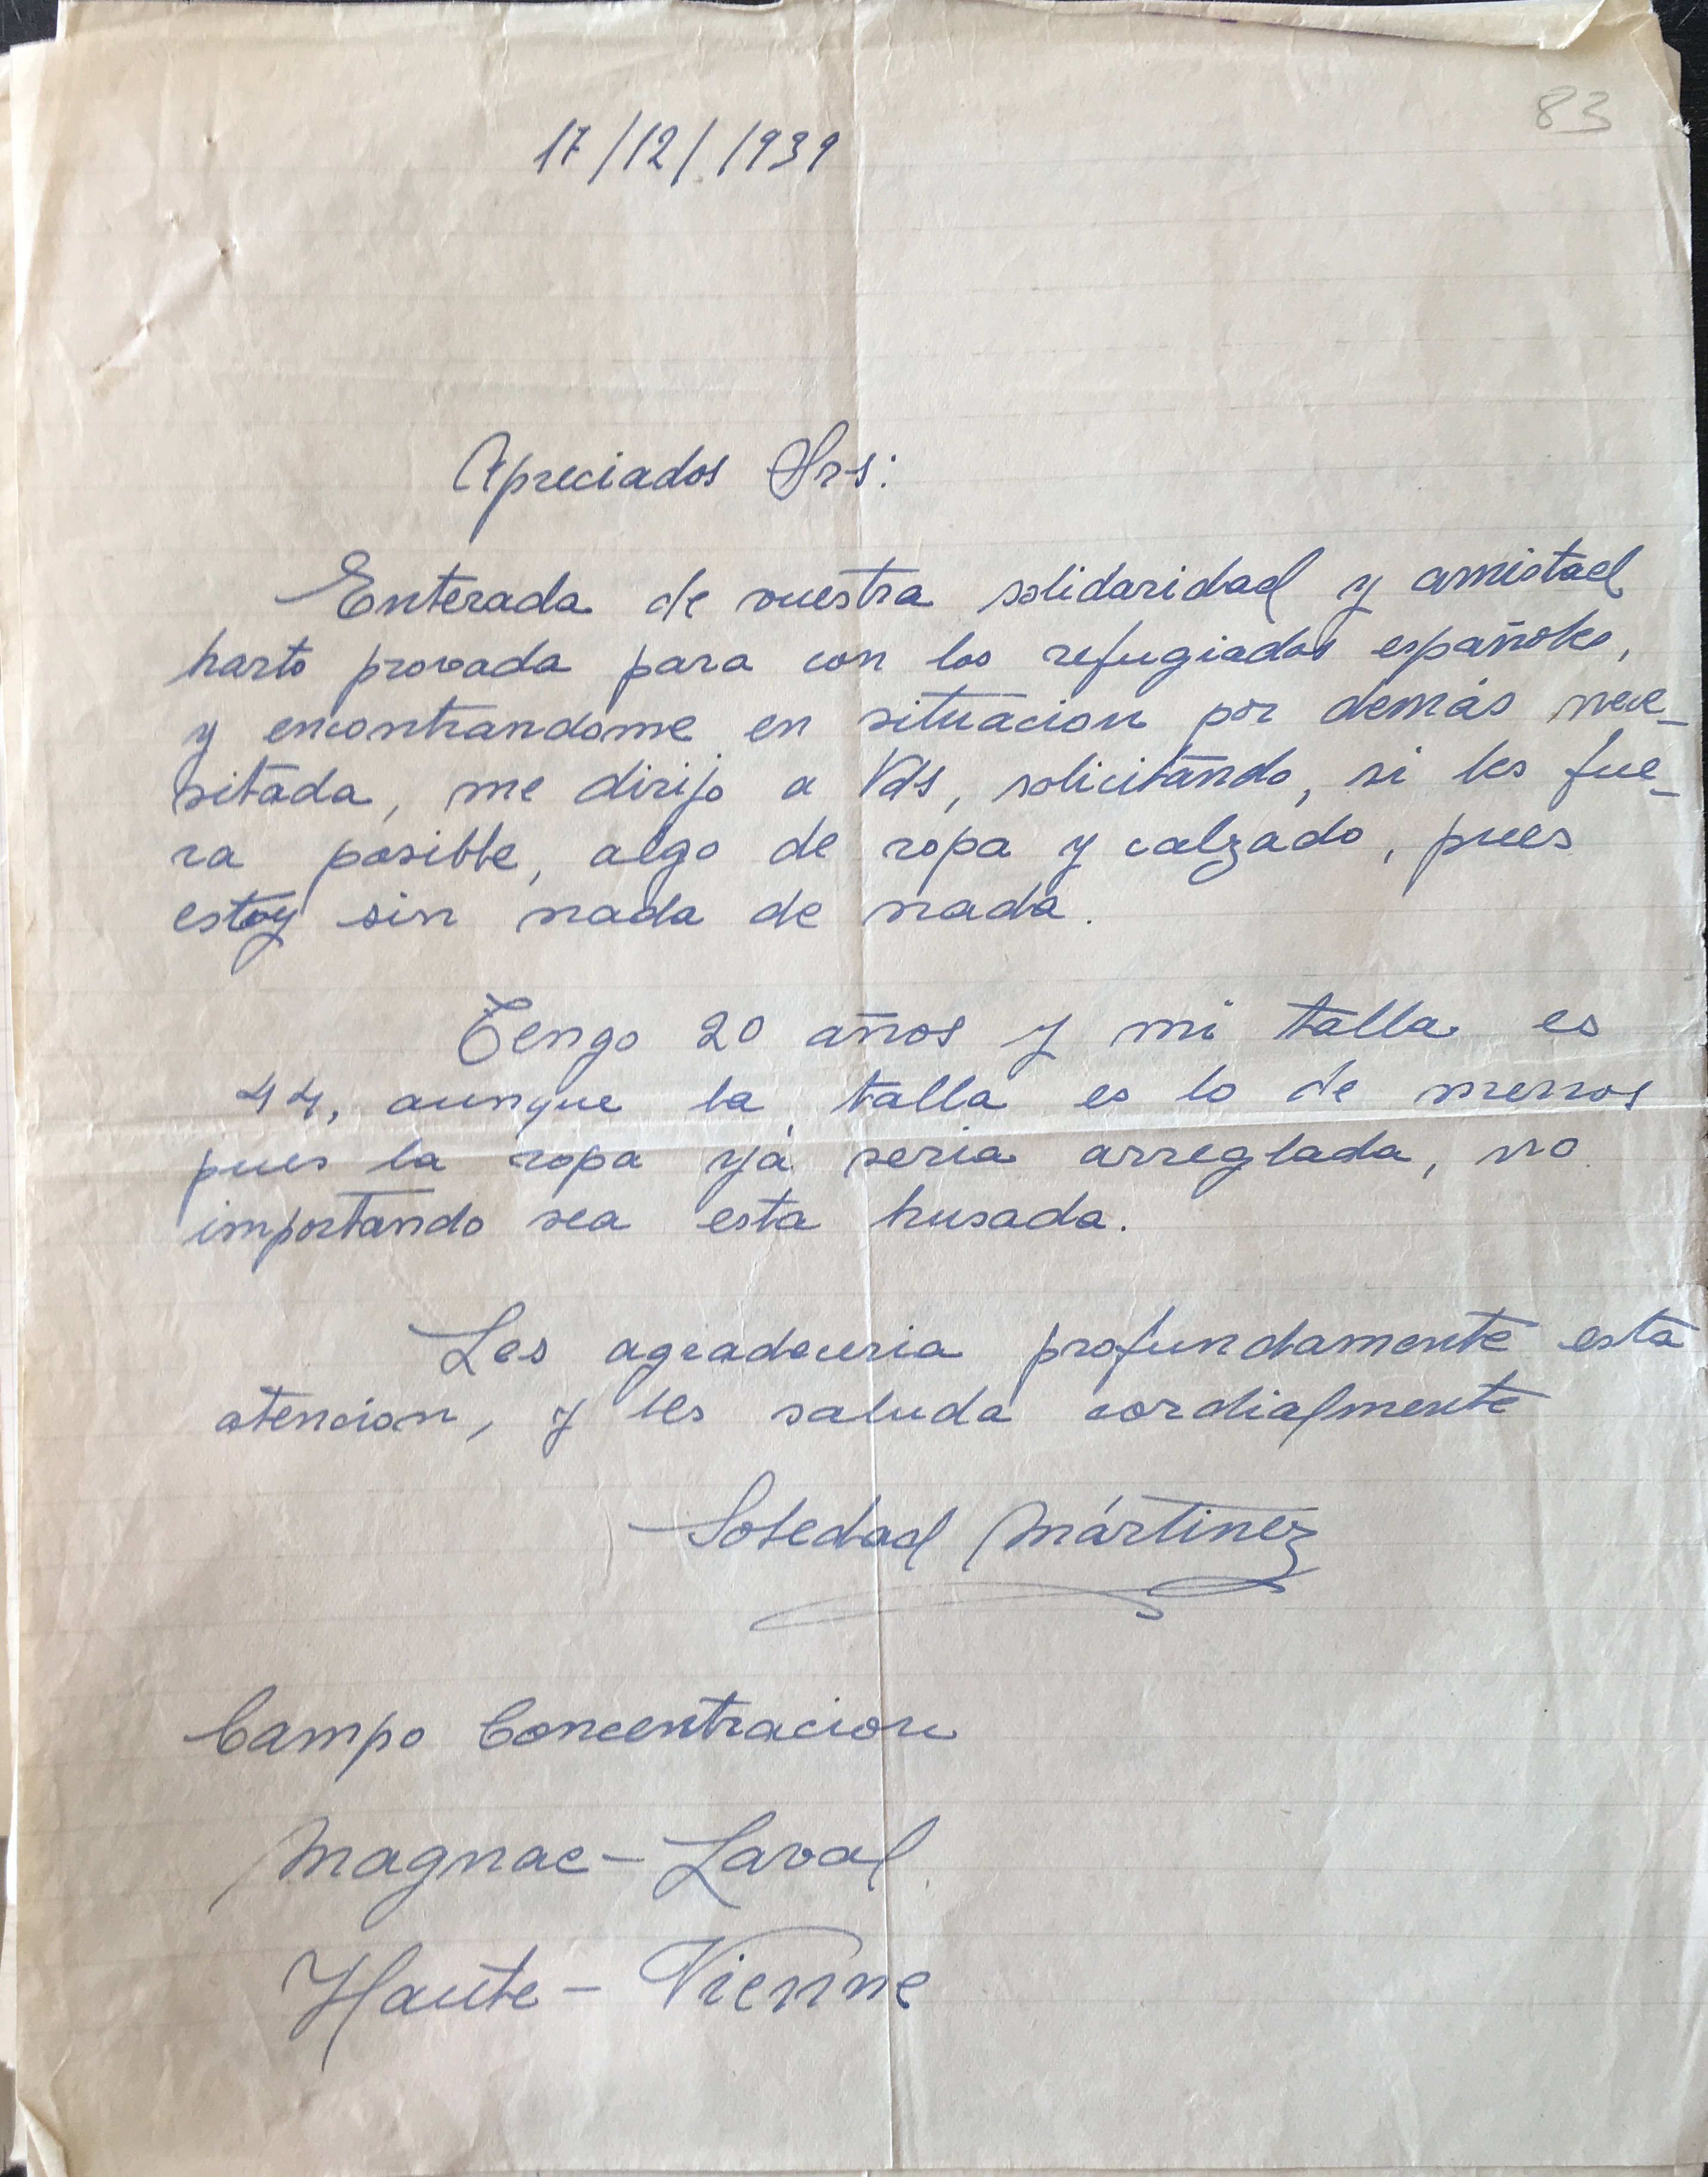 83
17/12/1939
Apreciados Srs:
Enterada de vuestra solidaridad y amistad
harto provada para con los refugiados españoles,
y encontrandome en situacion por demás nece-
sitada, me dirijo a Vds, solicitando, si les fue-
ra posible, algo de ropa y calzado, pues
estoy sin nada de nada.
Tengo 20 años y mi talla es
44, aunque la talla es lo de menos
pues la ropa yá seria arreglada, no
importando sea esta husada.
Les agradeceria profundamente esta
atencion, y les saluda cordialmente
Soledad Mártinez
Campo Concentracion
Magnac-Laval
Haute-Vienne